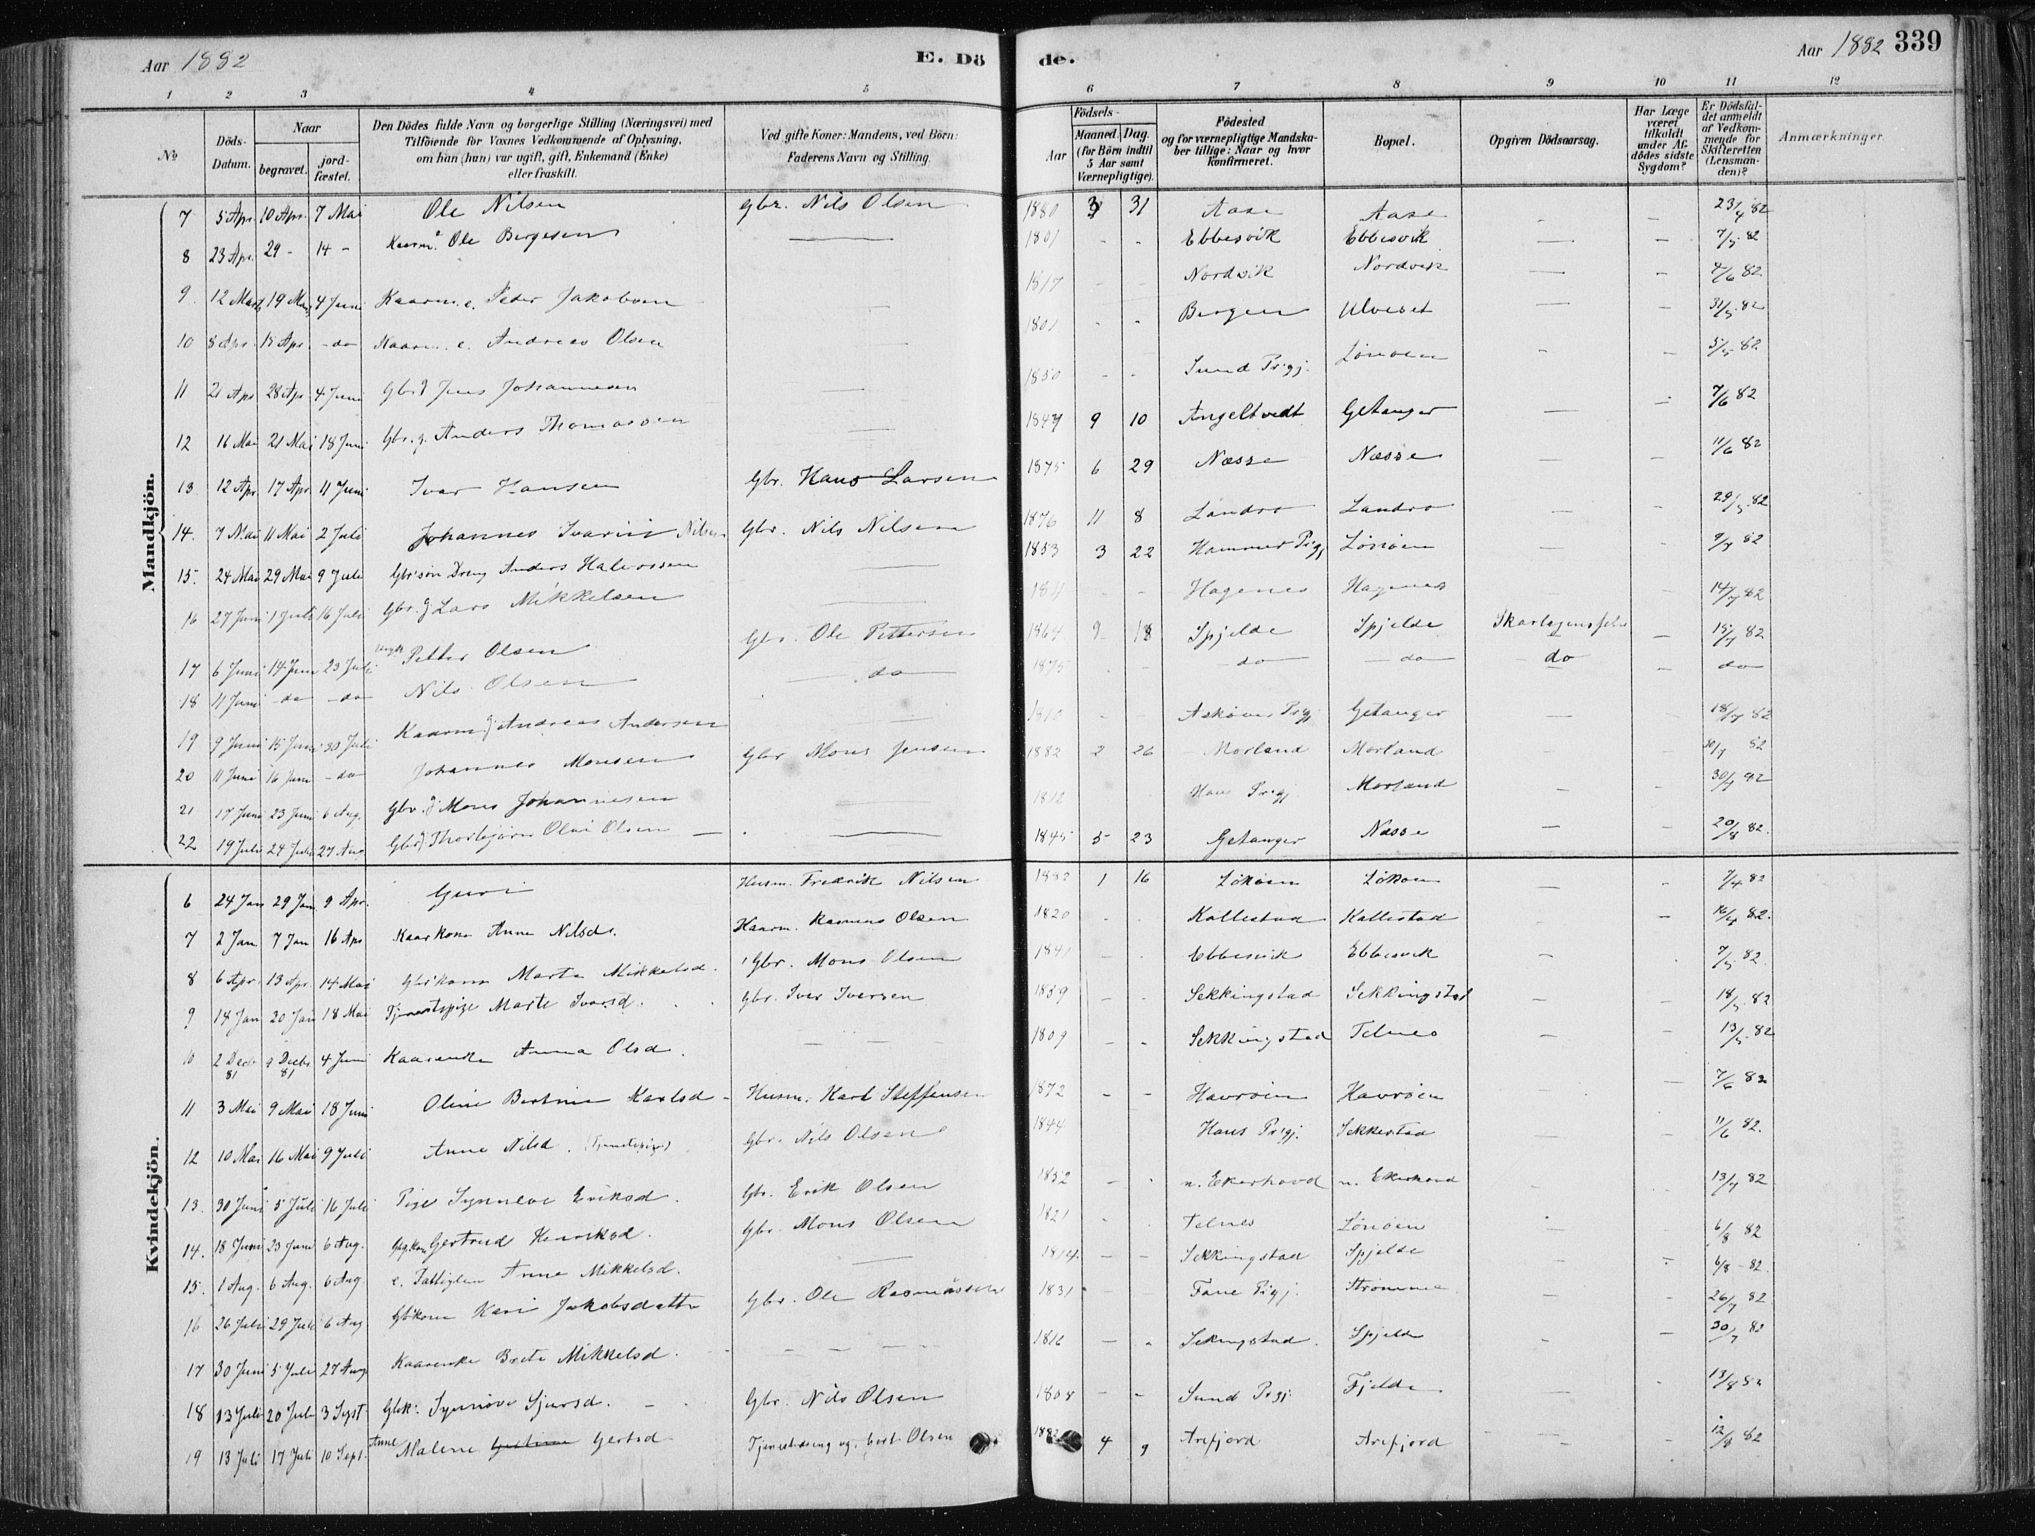 Aar 1882 E. Dö de. Aar 1882 339
1 2 3 4 5 6 7 8 9 10 11 12
No
Döds-Datum.
Naar
begravet.
jord-fæstet.
Den Dödes fulde Navn og borgerlige Stilling (Næringsvei) med
Tilföiende for Voxnes Vedkommende af Oplysning,
om han (hun) var ugift, gift, Enkemand (Enke)
eller fraskilt.
Ved gifte Koner: Mandens, ved Börn:
Faderens Navn og Stilling.
Födsels-
Aar
Maaned. Dag.
(for Börn indtil
5 Aar samt
Værnepligtige).
Födested
og for værnepligtige Mandska-
ber tillige: Naar og hvor
konfirmeret.
Bopæl.
Opgiven Dödsaarsag.
Har Læge
været
tilkaldt
under Af-
dödes sidste
Sygdom?
Er Dödsfal-
det anmeldt
af Vedkom-
mende for
Skifteretten
(Lensman-
den)?
Anmærkninger
Mandkjön.
7 5 Apr. 10 Apr. 7 Mai Ole Nilsen Gbr. Nils Olsen 1880 3 31 Aase Aase 23/4 82
8 23 Apr. 29 - 14 - Kaarm. Ole Børgesen 1801 - - Ebbesvik Ebbesvik 7/5 82
9 12 Marts 19 Marts 4 Juni Kaarm. e. Peder Jakobsen 1817 - - Nordvik Nordvik 4/6 82
10 8 Apr. 15 Apr. - do Kaarm. e. Andreas Olsen 1801 - - Bergen Ulveset 31/5 82
11 21 Apr. 28 Apr. 4 Juni Gbr. g Jens Johannesen 1850 - - Sund Prgj. Lønøen 5/5 82
12 16 Mai 21 Mai 18 Juni Gbr. g. Anders Thomassen 1849 9 10 Angeltvedt Getanger 7/6 82
13 12 Apr. 17 Apr. 11 Juni Ivar Hansen Gbr. Hans Larsen 1875 6 29 Næsse Næsse 11/6 82
14. 7 Mai 11 Mai 2 Juli Johannes Ivarini Nilsen Gbr. Nils Nilsen 1876 11 8 Landro Landro 29/5 82
15. 24 Mai 29 Mai 9 Juli Gbr.søn Dreng Anders Halvorsen 1853 3 22 Hammer Prgj Lønøen 9/7 82
16 27 Juni 1 Juli 16 Juli Gbr. g Lars Mikkelsen Hagenes Hagenes 14/7 82
17 6 Juni 14 Juni 23 Juli Petter Olsen Gbr. Ole Pettersen 1864 9 18 Spjelde Spjelde 15/7 82
18 11 Juni - do - do Nils Olsen do 1875 do do do do
19 9 Juni 15 Juni 30 Juli Kaarm g Andreas Andersen 1810 - - Askøens Prgj Getanger 18/7 82
20 11 Juni 16 Juni - do Johannes Monsen Gbr Mons Jensen 1882 2 26 Morland Morland 30/7 82
21 17 Juni 23 Juni 6 Aug. Gbr. g Mons Johannesen 1812 Haus Prgj. Morland 30/7 92
22 19 Juli 24 Juli 27 Aug Gbr. g Thorbjørn Olai Olsen 1845 5 23 Getanger Næsse 20/8 82.
Kvindekjön.
6 24 Jan 29 Jan 9 Apr. Guri Husm. Fredrik Nilsen 1882 1 16 Løkøen Løkøen 7/4 82
7 2 Jan 7 Jan 16 Apr Kaarkone Anne Nilsd. Kaarm. Rasmus Olsen 1820 Kallestad Kallestad 16/4 82.
8 6 Apr. 13 Apr. 14 Mai Gbrkone Marta Mikkelsd. Gbr. Mons Olsen 1841 Ebbesvik Ebbesvik 7/5 82
9 14 Jan 20 Jan 18 Mai Tjenestepige Marte Ivarsd. Gbr. Iver Iversen 1859 - - Sekkingstad Sekkingstad 18/5 82
10 2 Decbr 81 9 Decbr 81 4 Juni Kaarenke Anna Olsd. 1809 - - Sekkingstad Telnes 13/5 82
11 3 Mai 9 Mai 18 Juni Oline Bertine Karlsd Husm. Karl Steffensen 1872 - - Havrøen Havrøen 7/6 82
12 10 Mai 16 Mai 9 Juli Anne Nilsd. (Tjenestepige) Gbr. Nils Olsen 1844 Haus Prgj. Sekkestad 11/6 82.
13. 30 Juni 5 Juli 16 Juli Pige Synneve Eriksd. Gbr. Erik Olsen 1852 - - n. Ekerhovd n. Ekerhovd 13/7 82
14. 18 Juni 23 Juni 6 Aug. Gertrud Henriksd. Gbr. Mons Olsen 1821 Telnes Lønøen 6/8 82
15. 1 Aug. 6 Aug. 6 Aug. e. Fattiglem Anne Mikkelsd. 1814 - - Sekkingstad Spjelde 6/8 - 82.
16 26 Juli 29 Juli 6 Aug Gbkone Kari Jakobsdatter Gbr. Ole Rasmussen 1831 Fane Prgj. Strømme 26/7 82
17 30 Juni 5 Juli 27 Aug Kaarenke Brite Mikkelsd. 1812 - - Sekingstad. Spjelde 30/7 82
18 13 Juli 20 Juli 3 Sept. Gbk. Synnøve Sjursd. Gbr. Nils Olsen 1808 - - Sund Prgj Fjelde 13/8 82
19 13 Juli 17 Juli 10 Sept. Anne Malene Gertsd Tjenestedreng og Gert Olsen 1882 4 9 Arefjord Arefjord 12/8 82